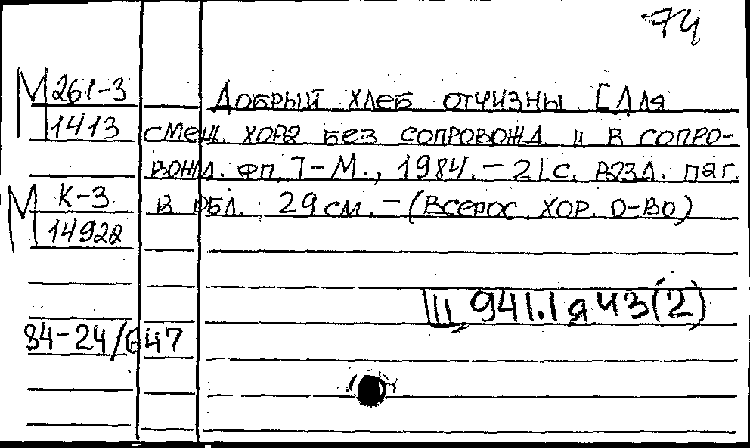 74
М 261-3
1413
Добрый хлеб отчизны [Для
смеш. хора без сопровожд. и в сопро-
вожд. фп.]-М., 1984.-21 с. разд. паг.
М К-3
14922
в обл. ; 29 см. - (Всерос. хор. о-во)
Ш 941.1я43(2)
84-24/647